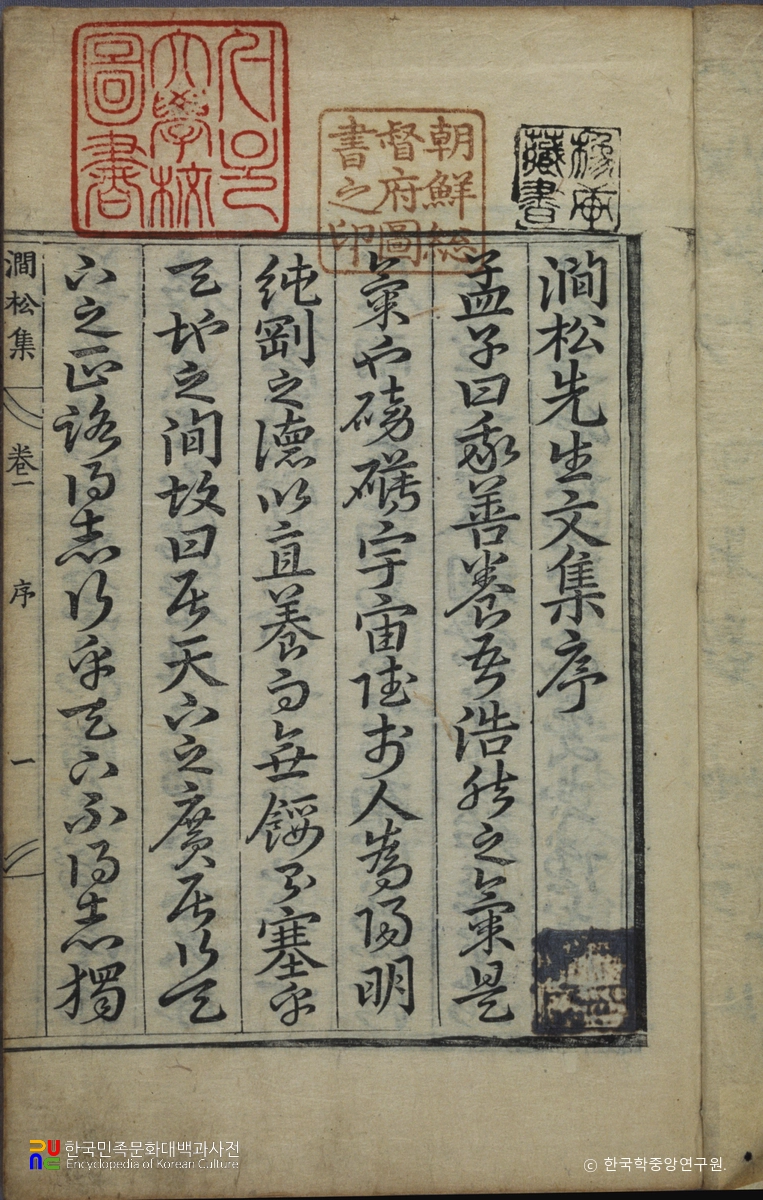 서울大學校圖書
朝鮮總督府圖書之印
藏書
澗松先生文集序
孟子曰我善養吾浩然之氣是
氣也磅礴宇宙於人爲陽明
純剛之德以直養而無餒則塞乎
天地之間故曰居天下之廣居行天
下之正路得志行乎天下不得志獨
澗松集 卷一 序 一
한국민족문화대백과사전
Encyclopedia of Korean Culture
© 한국학중앙연구원.